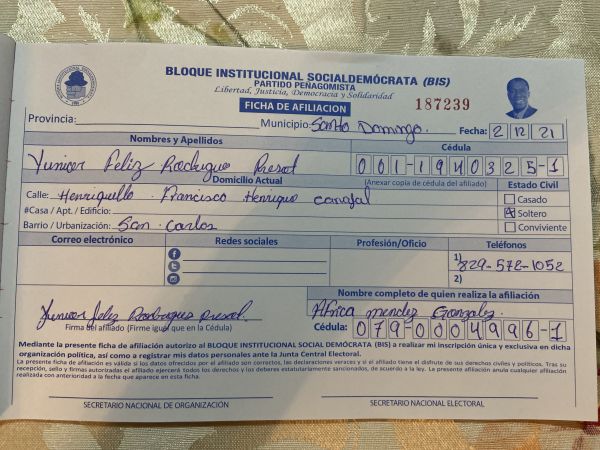 BLOQUE INSTITUCIONAL SOCIALDEMÓCRATA (BIS)
PARTIDO PEÑAGOMISTA
Libertad, Justicia, Democracia y Solidaridad
FICHA DE AFILIACION
187239
Provincia: Municipio: Santo Domingo. Fecha: 2 12 21
Nombres y Apellidos Cédula
Yunior Feliz Rodriguez 001-1940325-1
Domicilio Actual (Anexar copia de cédula del afiliado) Estado Civil
Calle: Henriquillo. Francisco Henrique Casado
#Casa / Apt. / Edificio: Soltero
Barrio / Urbanización: San Carlos Conviviente
Correo electrónico Redes sociales Profesión/Oficio Teléfonos
1) 829-572-1052
2)
Nombre completo de quien realiza la afiliación
Africa mendez Gonzalez
Firma del afiliado (Firme igual que en la Cédula) Cédula: 079-0004996-1
Mediante la presente ficha de afiliación autorizo al BLOQUE INSTITUCIONAL SOCIAL DEMÓCRATA (BIS) a realizar mi inscripción única y exclusiva en dicha
organización política, así como a registrar mis datos personales ante la Junta Central Electoral.
La presente ficha de afiliación es válida si los datos ofrecidos por el afiliado son correctos, las declaraciones veraces y si el afiliado tiene el disfrute de sus derechos civiles y políticos. Tras su
recepción, sello y firmas autorizadas el afiliado ejercerá todos los derechos y los deberes estatutariamente sancionados, de acuerdo a la ley. La presente afiliación anula cualquier afiliación
realizada con anterioridad a la fecha que aparece en esta ficha.
SECRETARIO NACIONAL DE ORGANIZACIÓN SECRETARIO NACIONAL ELECTORAL